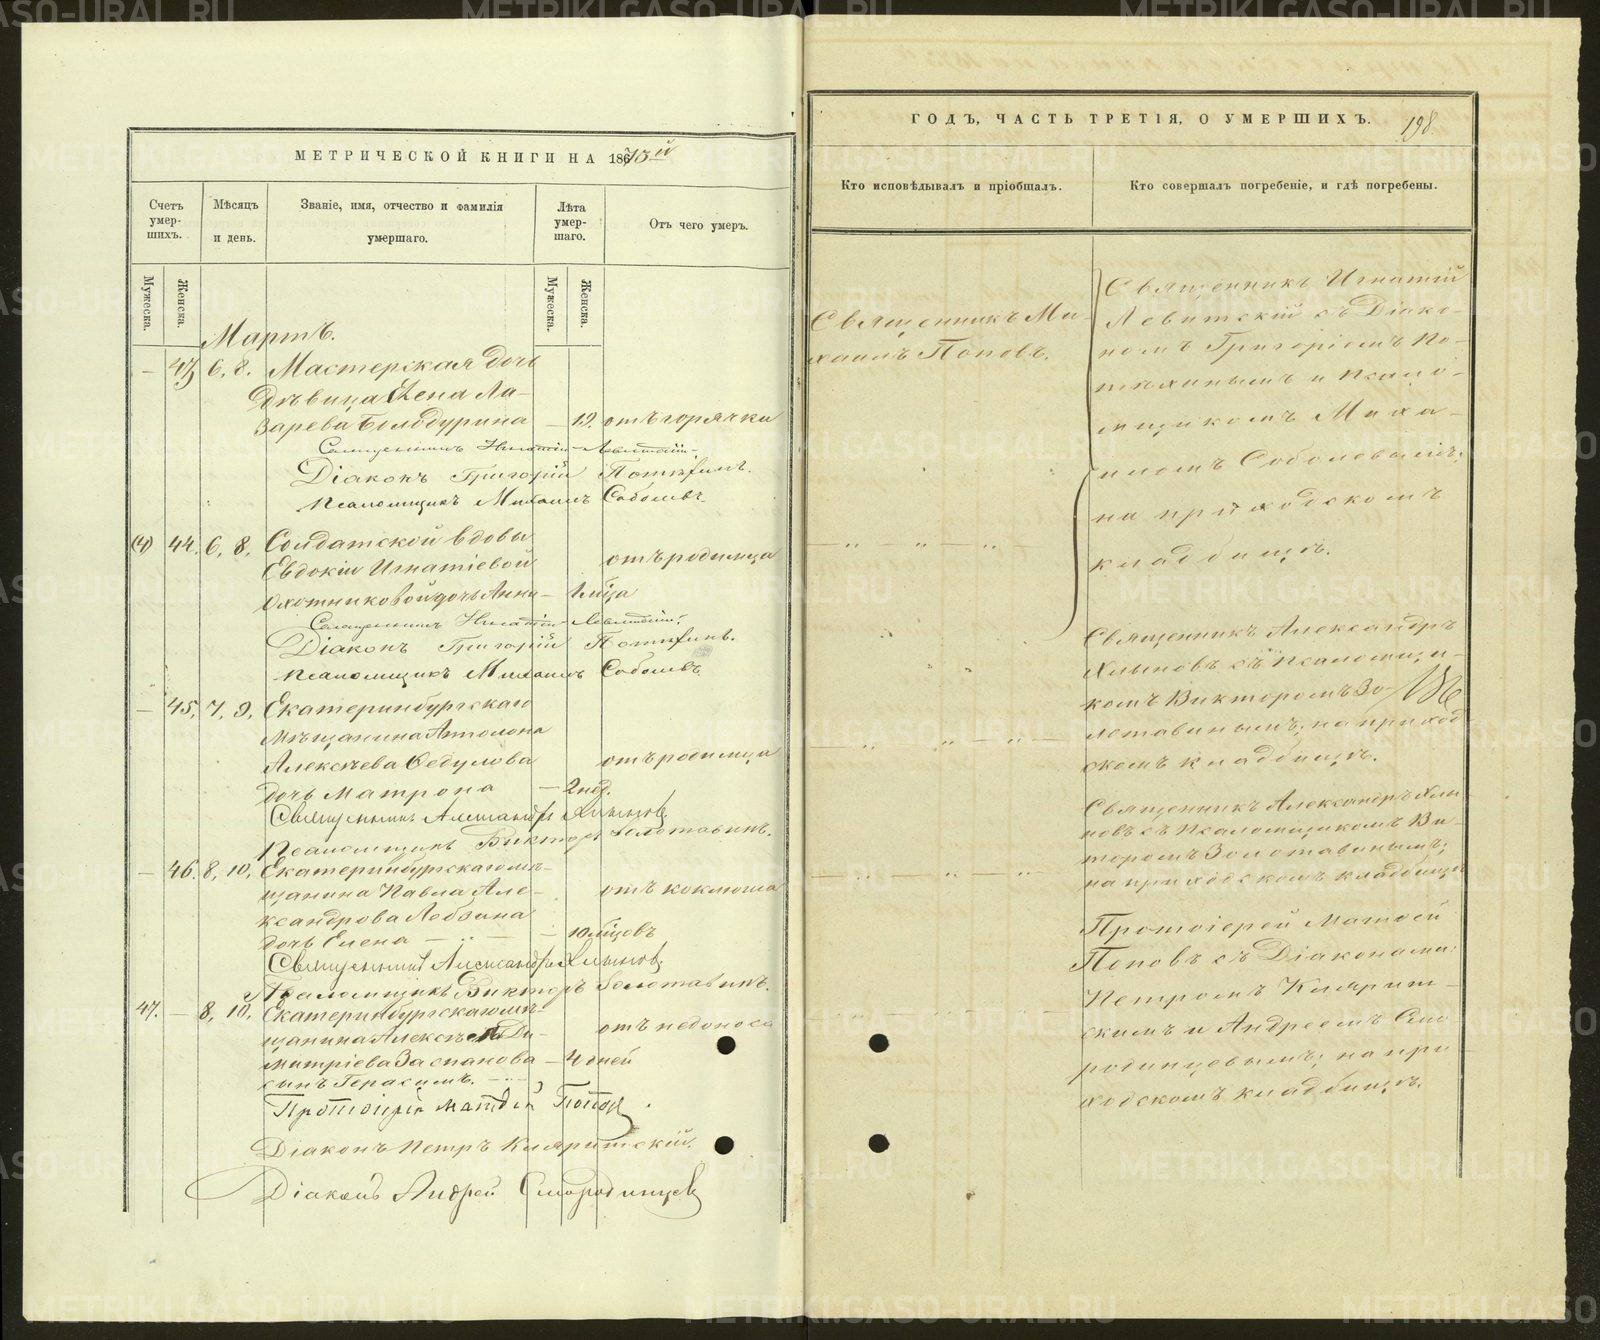 МЕТРИЧЕСКОЙ КНИГИ НА 1873й
Счетъ умер-шихъ.
Мѣсяцъ и день.
Званіе, имя, отчество и фамилія умершаго.
Лѣта умер-шаго.
Отъ чего умеръ.
Мужеска.
Женска.
Мужеска.
Женска.
Мартъ.
— 43 6, 8. Мастерская дочь
Дѣвица Елена Ла-
зарева Болдурина — 19. отъ горячки
Священникъ Игнатій Левитскій.
Діаконъ Григорій Потѣхинъ.
Псаломщикъ Михаилъ Соболевъ.
(4) 44. 6, 8, Солдатской вдовы
Евдокіи Игнатіевой отъ родимца
Охотниковой дочь Анна — 1 мѣсца
Священникъ Игнатій Левитскій.
Діаконъ Григорій Потѣхинъ.
Псаломщикъ Михаилъ Соболевъ
— 45, 7, 9, Екатеринбургскаго
мѣщанина Антолона
Алексѣева Федулова отъ родимца
дочь Матрона — 2 нед.
Священникъ Александръ Хлыновъ.
Псаломщикъ Викторъ Золотавинъ.
— 46. 8, 10, Екатеринбургскаго мѣ-
щанина Павла Але- отъ коклюша
ксандрова Лобзина
дочь Елена — 10 мѣсцовъ
Священникъ Александръ Хлыновъ.
Псаломщикъ Викторъ Золотавинъ.
47. — 8, 10, Екатеринбургскаго мѣ-
щанина Алексѣя Ди- отъ недоноса
митріева Заспанова — 4 дней
сынъ Герасимъ.
Протоіерей Матѳей Поповъ.
Діаконъ Петръ Кипаритскій.
Діаконъ Андрей Смородинцевъ
ГОДЪ, ЧАСТЬ ТРЕТІЯ, О УМЕРШИХЪ.
198.
Кто исповѣдывалъ и пріобщалъ.
Кто совершалъ погребеніе, и гдѣ погребены.
Священникъ Ми-
хаилъ Поповъ.
Священникъ Игнатій
Левитскій съ Діако-
номъ Григоріемъ По-
тѣхинымъ и Псало-
мщикомъ Миха-
иломъ Соболевымъ;
на приходскомъ
кладбищѣ.
Священникъ Александръ
Хлыновъ съ Псаломщи-
комъ Викторомъ Зо-
лотавинымъ; на приход-
скомъ кладбищѣ.
Священникъ Александръ Хлы-
новъ съ Псаломщикомъ Ви-
кторомъ Золотавинымъ;
на приходскомъ кладбищѣ
Протоіерей Матѳей
Поповъ съ Діаконами:
Петромъ Кипарит-
скимъ и Андреемъ Смо
родинцевымъ; на при
ходскомъ кладбищѣ.
METRIKI.GASO-URAL.RU